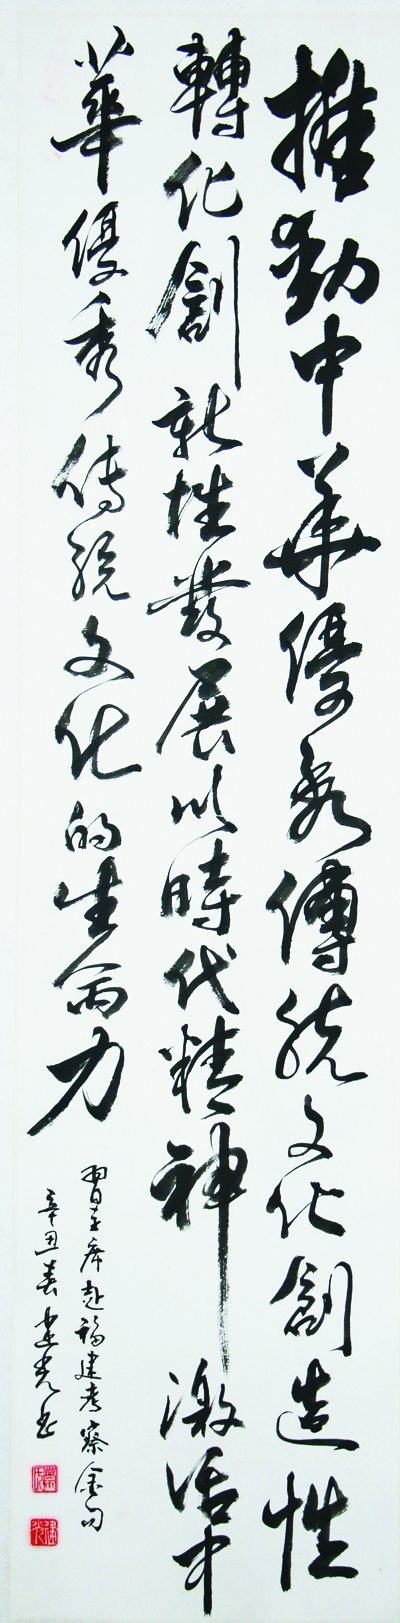 推動中華優秀傳統文化創造性
轉化創新性發展以時代精神激活中
華優秀傳統文化的生命力
習主席赴福建考察金句
辛丑春建光書